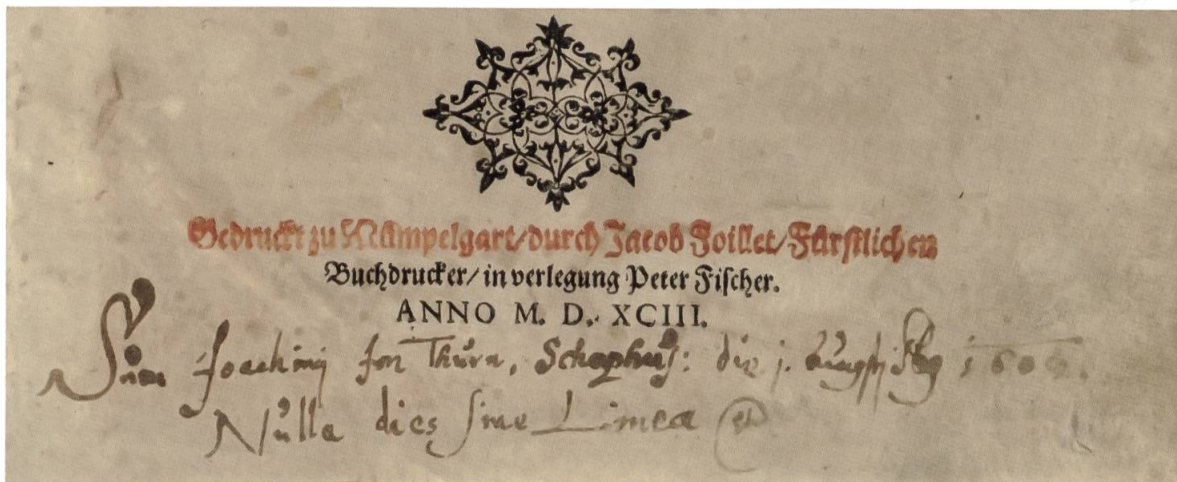 Gedruckt zu Mümpelgart/durch Jacob Foillet/Fürstlichen
Buchdrucker/in verlegung Peter Fischer.
ANNO M. D. XCIII.
Sum Joachimj Im Thurn, Schaphus: die j. Augstj
Nulla dies sine Linea